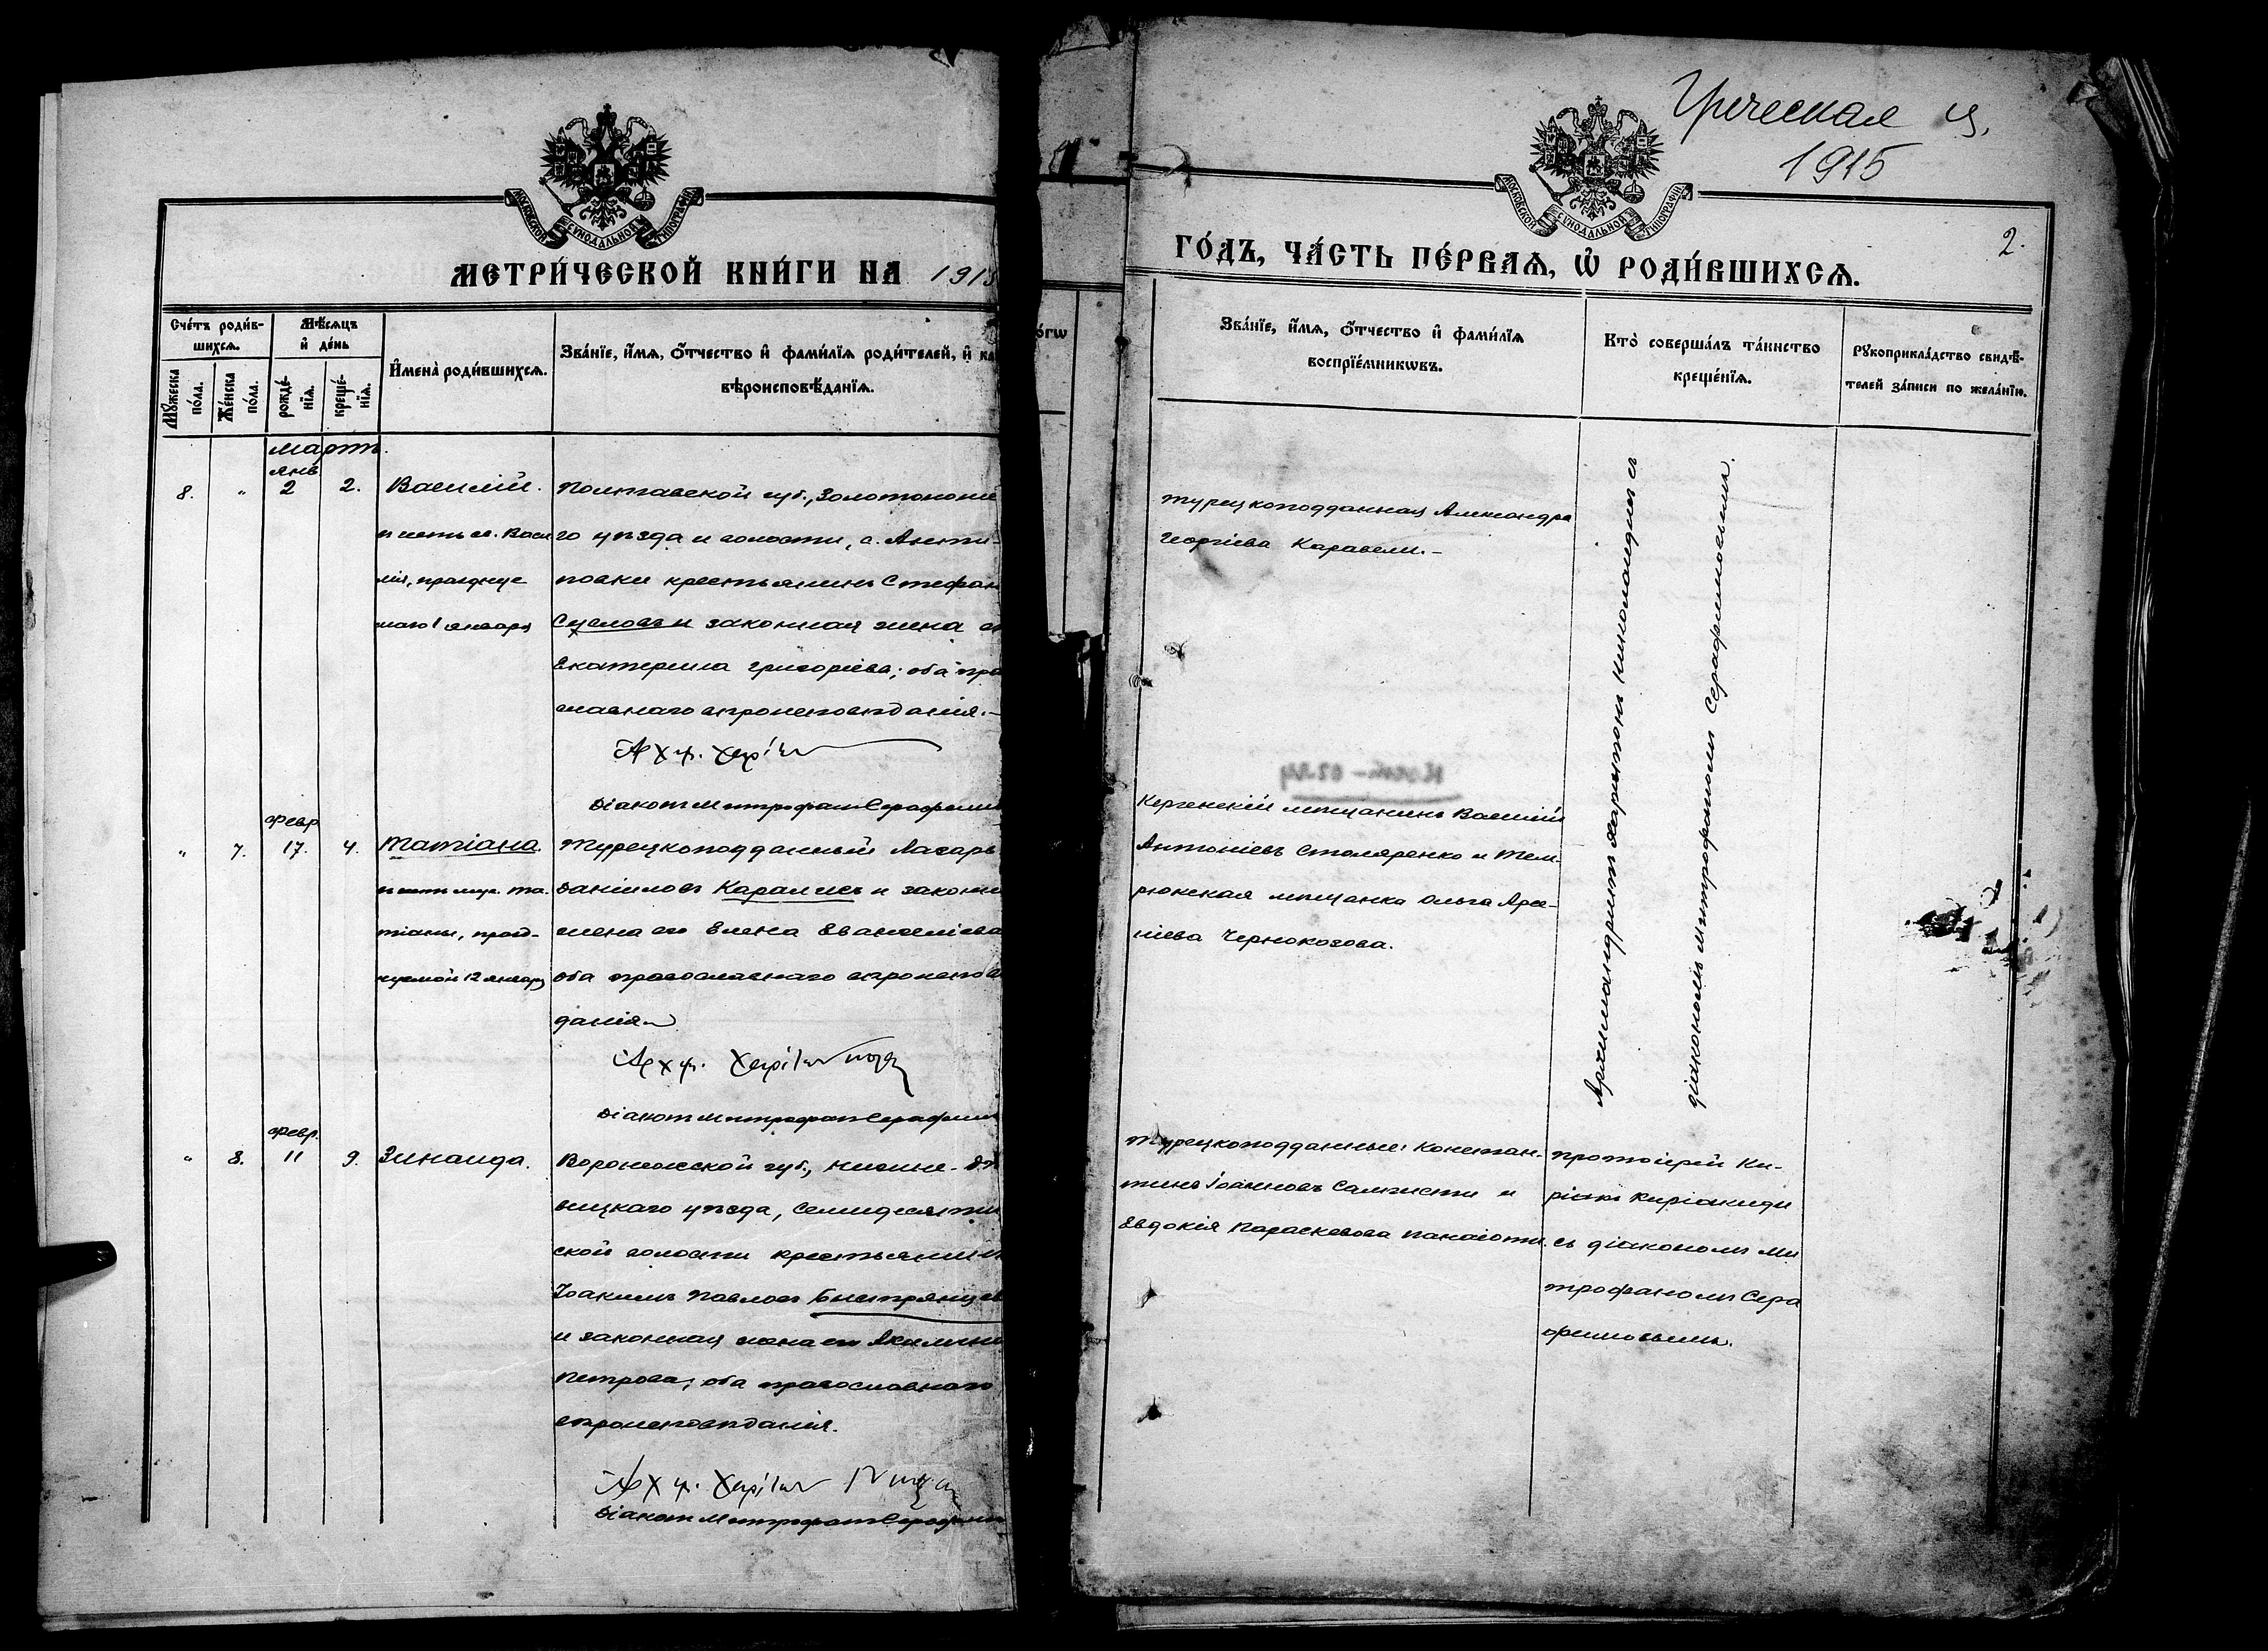 Греческая ц.
1915
2.
МОСКОВСКОЙ СѴНОДАЛЬНОЙ ТИПОГРАФІИ
МОСКОВСКОЙ СѴНОДАЛЬНОЙ ТИПОГРАФІИ
МЕТРИ́ЧЕСКОЙ КНИ́ГИ НА 1915
ГО́ДЪ, ЧА́СТЬ ПЕ́РВАѦ, Ѡ҆ РОДИ́ВШИХСѦ.
Сче́тъ роди́в-
шихсѧ.
Мꙋ́жеска по́ла.
Же́нска по́ла.
Мѣ́сѧцъ
и҆ де́нь
рожде́-
нїѧ.
креще́-
нїѧ.
И҆мена̀ роди́вшихсѧ.
Зва́нїе, и҆́мѧ, ѻ҆́тчество и҆ фами́лїѧ роди́телей, и҆ ка
вѣроисповѣ́данїѧ.
о́гѡ
Зва́нїе, и҆́мѧ, ѻ҆́тчество и҆ фами́лїѧ
воспрїе́мникѡвъ.
Кто̀ соверша́лъ та́инство
креще́нїѧ.
Рꙋкоприкла́дство свидѣ́-
телей за́писи по жела́нїю.
мартъ.
янв
8. " 2 2. Василій.
въ честь св. Васи
лія, празднуе
маго 1 января
Полтавской губ., Золотоноше
го уѣзда и волости, с. Анти-
повки крестьянинъ Стефан
Сусловъ и законная жена ег
Екатерина Григоріева; оба пра
славнаго вѣроисповѣданія.–
Ἀρχιμ. Χαρίτων
Діаконъ Митрофанъ Серафим
турецкоподданная Александра
Георгіева Каравели.–
Архимандритъ Харитонъ Никополидисъ съ
діакономъ Митрофаномъ Серафимовымъ.
февр
" 7. 17. 4. Татіана.
въ честь муч. Та-
тіаны, празд-
нуемой 12 января
Турецкоподданный Лазарь
Даніиловъ Карамисъ и законн
жена его Елена Евангеліева
оба православнаго вѣроисповѣ
данія.
Ἀρχιμ. Χαρίτων
Діаконъ Митрофанъ Серафим
Керченскій мѣщанинъ Василій
Антоніевъ Столяренко и Тем-
рюкская мѣщанка Ольга Арсе-
ніева Чернокозова.
февр.
" 8. 11 9. Зинаида.
Воронежской губ., Нижне-Дѣ
вицкаго уѣзда, Семидесятн
ской волости крестьянин
Іоакимъ Павловъ Быстрянцев
и законная жена его Акилина
Петрова; оба православнаго
вѣроисповѣданія.
Ἀρχιμ. Χαρίτων
Діаконъ Митрофанъ Серафим
Турецкоподданные: Констан-
тинъ Іоанновъ Салписти и
Евдокія Параскевова Панаіоти.
протоіерей Ки-
ріакъ Киріакиди
съ діакономъ Ми
трофаномъ Сера
фимовымъ.